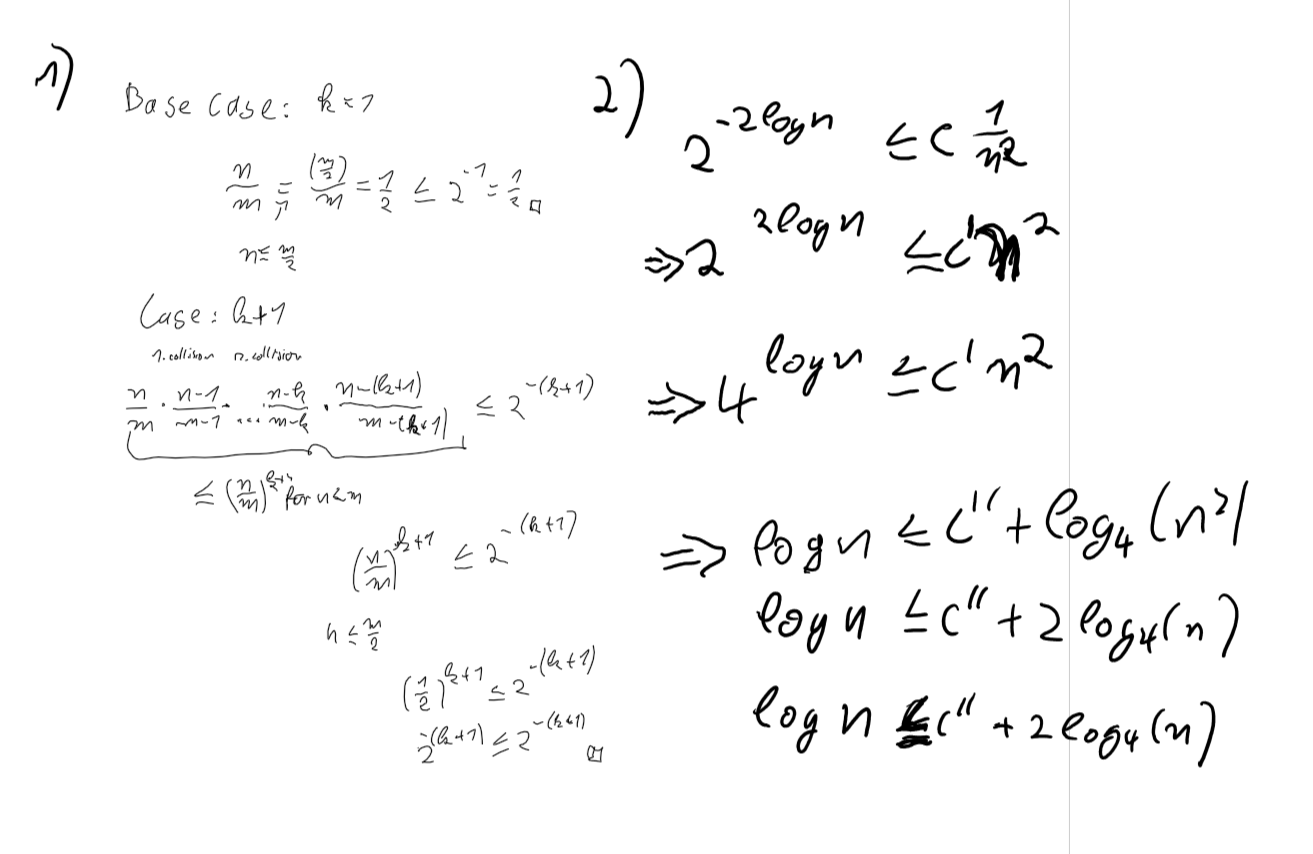 1)
Base Case: k=1
n/m = (m/2)/m = 1/2 ≤ 2^-1 = 1/2 □
n ≤ m/2
Case: k+1
1. collision 2. collision
n/m · (n-1)/(m-1) · ... (n-k)/(m-k) · (n-(k+1))/(m-(k+1)) ≤ 2^-(k+1)
≤ (n/m)^k+1 for n<m
(n/m)^k+1 ≤ 2^-(k+1)
n ≤ m/2
(1/2)^k+1 ≤ 2^-(k+1)
2^-(k+1) ≤ 2^-(k+1) □
2)
2^-2logn ≤ c 1/n^2
⇒ 2^2logn ≤ c' n^2
⇒ 4^logn ≤ c' n^2
⇒ log n ≤ c'' + log_4(n^2)
log n ≤ c'' + 2 log_4(n)
log n ≤ c'' + 2 log_4(n)